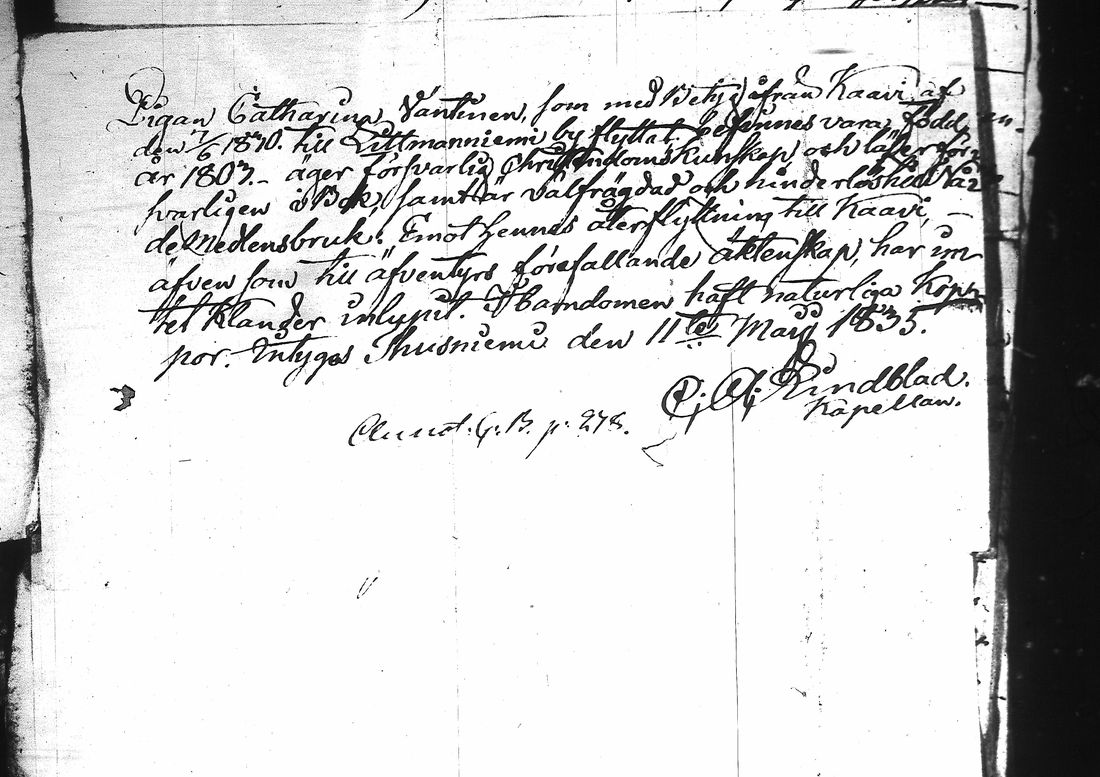 Pigan Catharina Väntinen, som med Betyg ifrån Kaavi af
den 7/6 1830. till Litmanniemi by flyttat. befinnes vara född
år 1803. – äger försvarlig Christendoms kunskap, och läser för-
svarligen i Bok, samt är välfrägdad och hinderlös till Natt-
vardens bruk. Emot hennes återflyttning till Kaavi, –
äfven som till äfventyrs förefallande äktenskap, har in-
tet klander inlupit. I barndomen haft naturliga Kop-
por. Intygas Thusniemi den 11te Maji 1835.
Lindblad.
Kapellan.
Annot. C. B. p. 278.